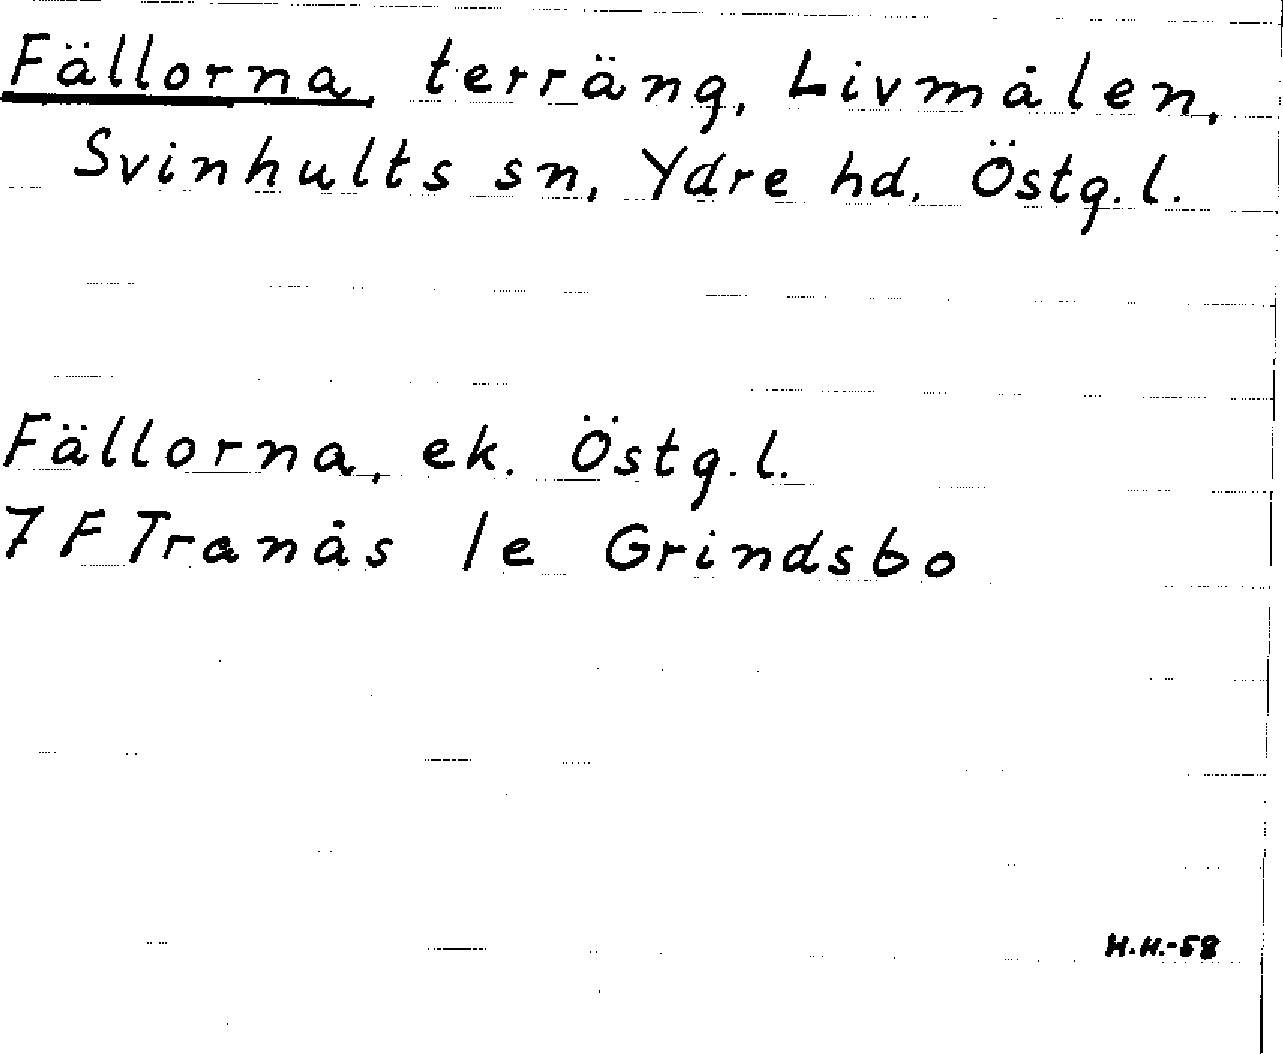 Fällorna, terräng, Livmålen,
Svinhults sn, Ydre hd, Östg.l.
Fällorna, ek. Östg.l.
7 F Tranås 1e Grindsbo
H.H.-58